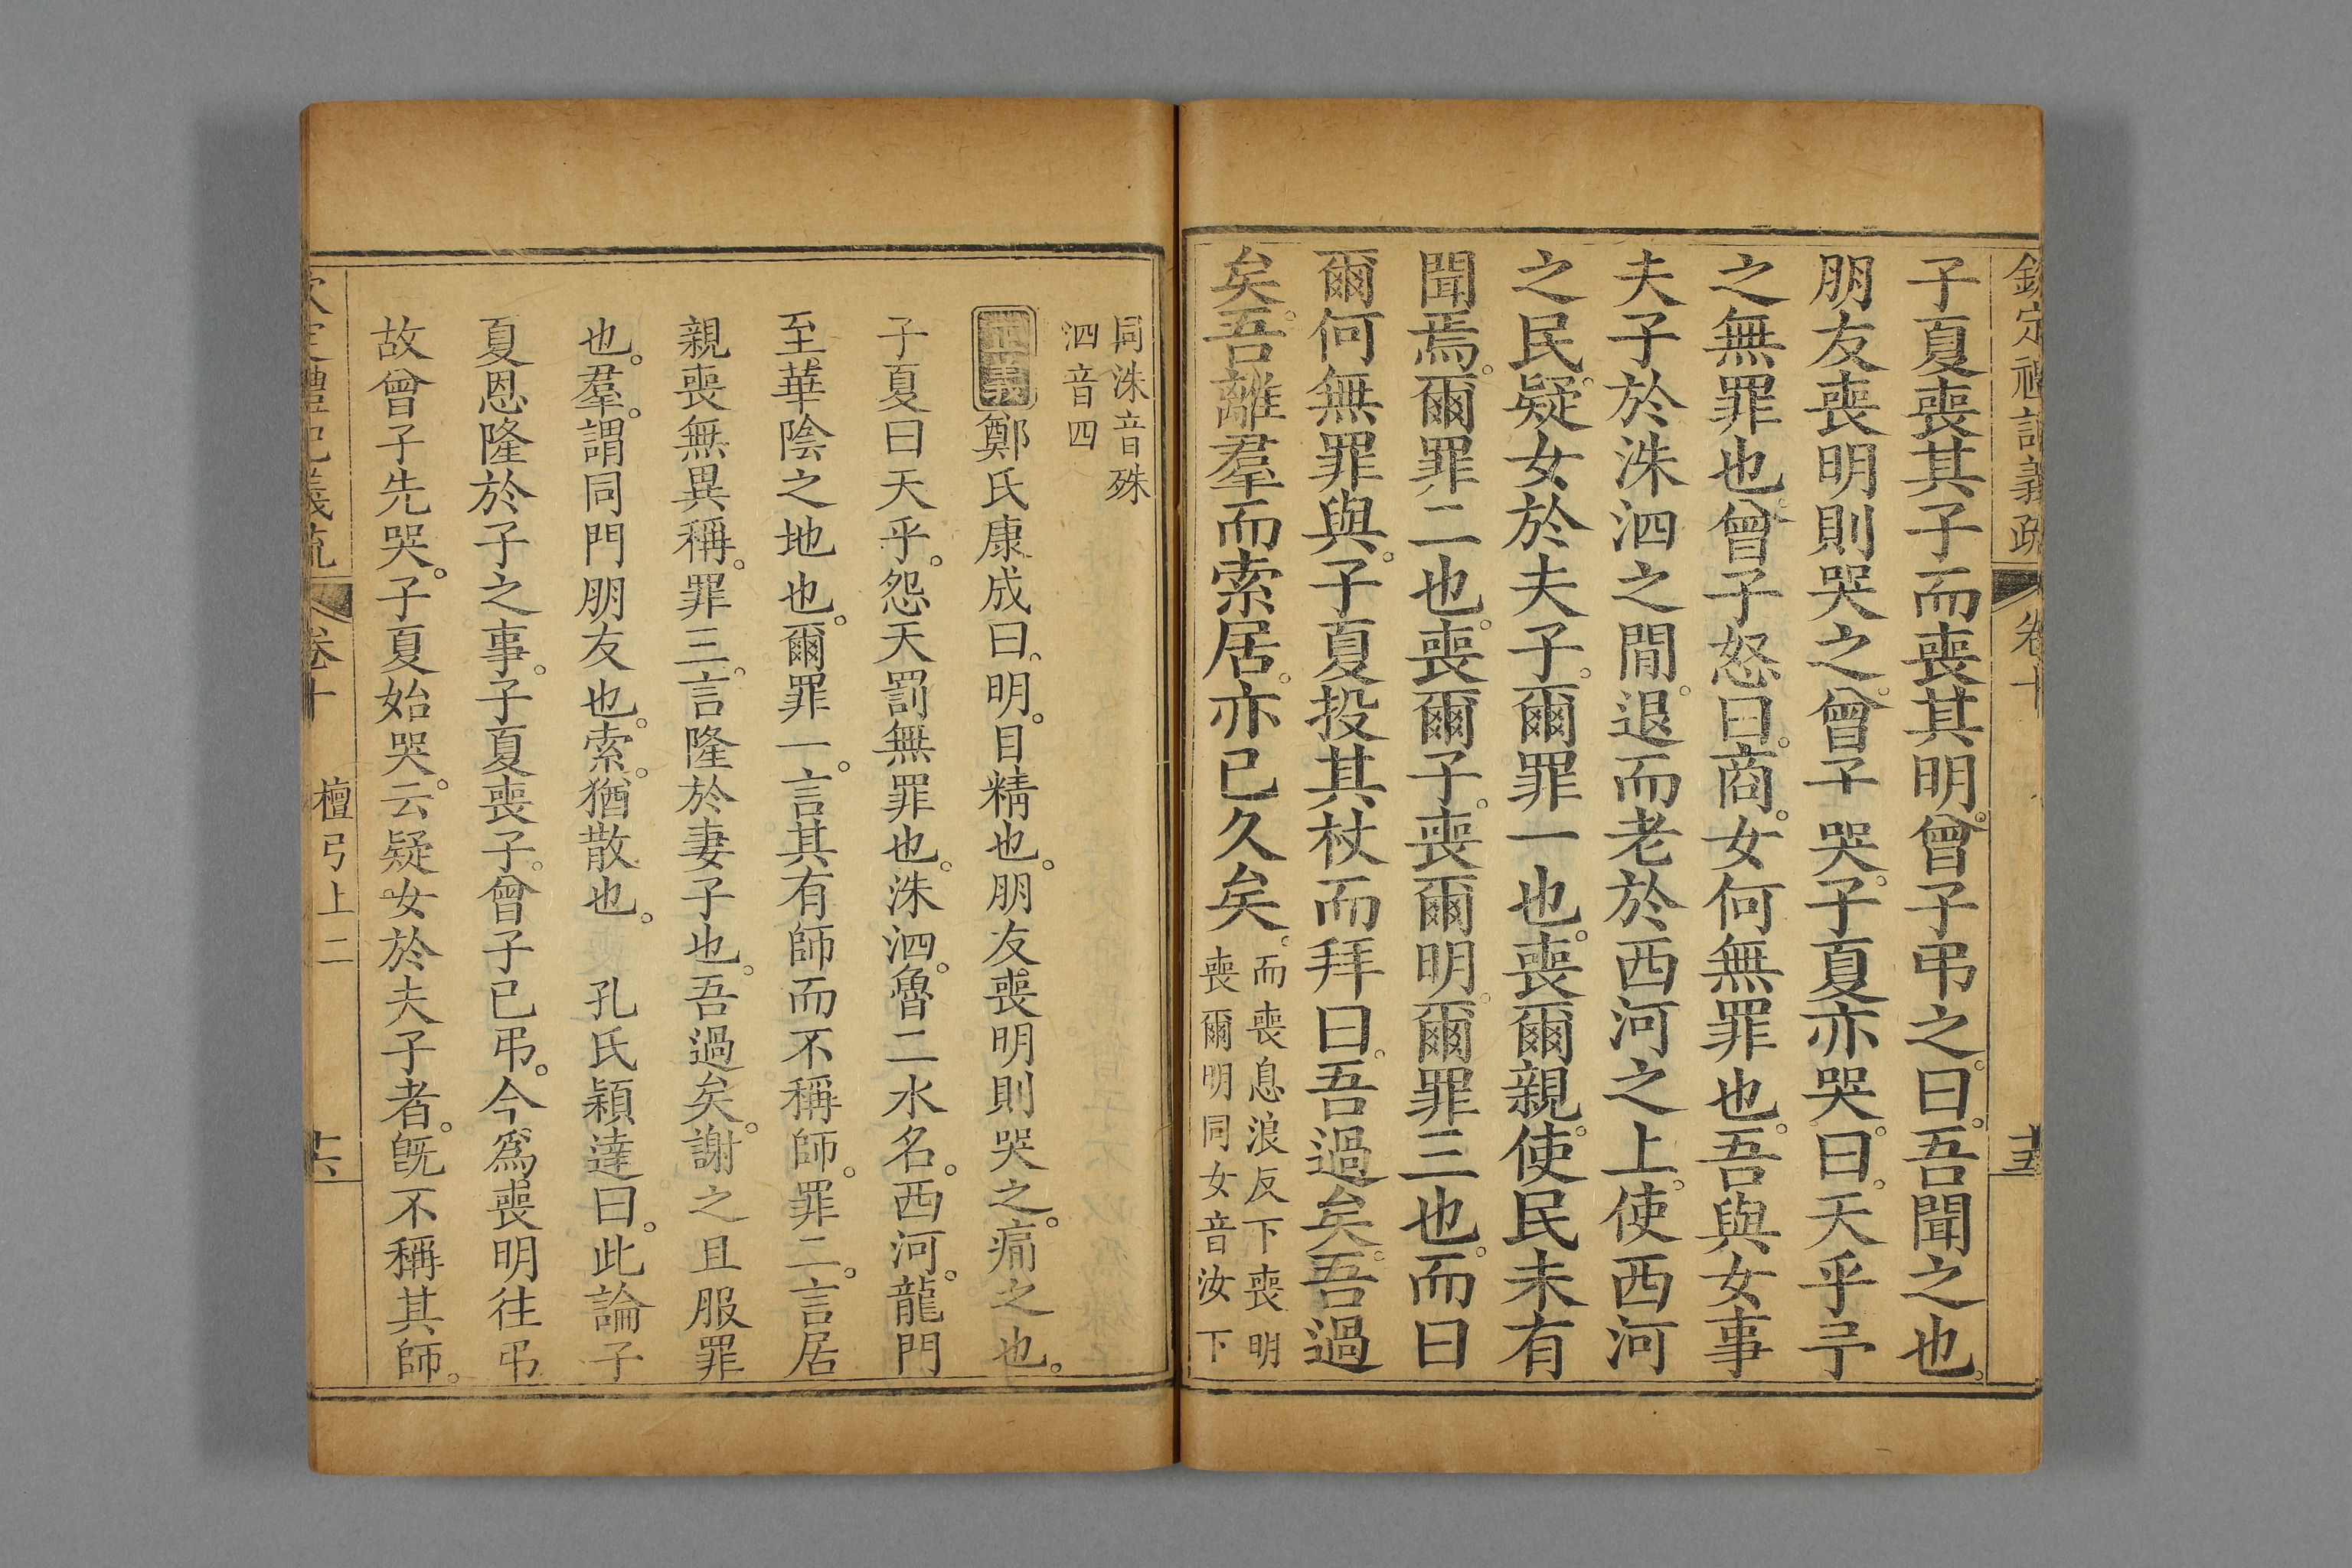 欽定禮記義疏 卷十 十五
子夏喪其子而喪其明。曾子弔之。曰。吾聞之也。
朋友喪明則哭之。曾子哭。子夏亦哭。曰。天乎予
之無罪也。曾子怒曰。商。女何無罪也。吾與女事
夫子於洙泗之間。退而老於西河之上。使西河
之民疑女於夫子。爾罪一也。喪爾親。使民未有
聞焉。爾罪二也。喪爾子。喪爾明。爾罪三也。而曰
爾何無罪與。子夏投其杖而拜曰。吾過矣。吾過
矣。吾離羣而索居。亦已久矣。
而喪息浪反下喪明
喪爾明同女音汝下
同洙音殊
泗音四
正義鄭氏康成曰。明。目精也。朋友喪明則哭之。痛之也。
子夏曰天乎。怨天罰無罪也。洙泗。魯二水名。西河。龍門
至華陰之地也。爾罪一。言其有師而不稱師。罪二。言居
親喪無異稱。罪三。言隆於妻子也。吾過矣。謝之且服罪
也。羣。謂同門朋友也。索。猶散也。 孔氏穎達曰。此論子
夏恩隆於子之事。子夏喪子。曾子已弔。今爲喪明往弔
故曾子先哭。子夏始哭。云疑女於夫子者。旣不稱其師。
欽定禮記義疏 卷十 檀弓上二 十六